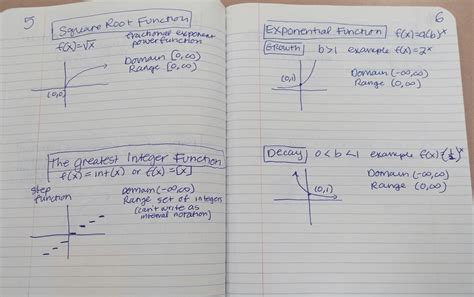 5
Square Root Function
f(x)=√x
fractional exponent
power function
Domain [0,∞)
Range [0,∞)
(0,0)
The Greatest Integer Function
f(x) = int(x) or f(x)=[x]
step
function
Domain (-∞,∞)
Range set of integers
(can't write as
interval notation)
6
Exponential Function f(x)=a(b)ˣ
Growth b>1 example f(x)=2ˣ
(0,1)
Domain (-∞,∞)
Range (0,∞)
Decay 0<b<1 example f(x)=(½)ˣ
(0,1)
Domain (-∞,∞)
Range (0,∞)